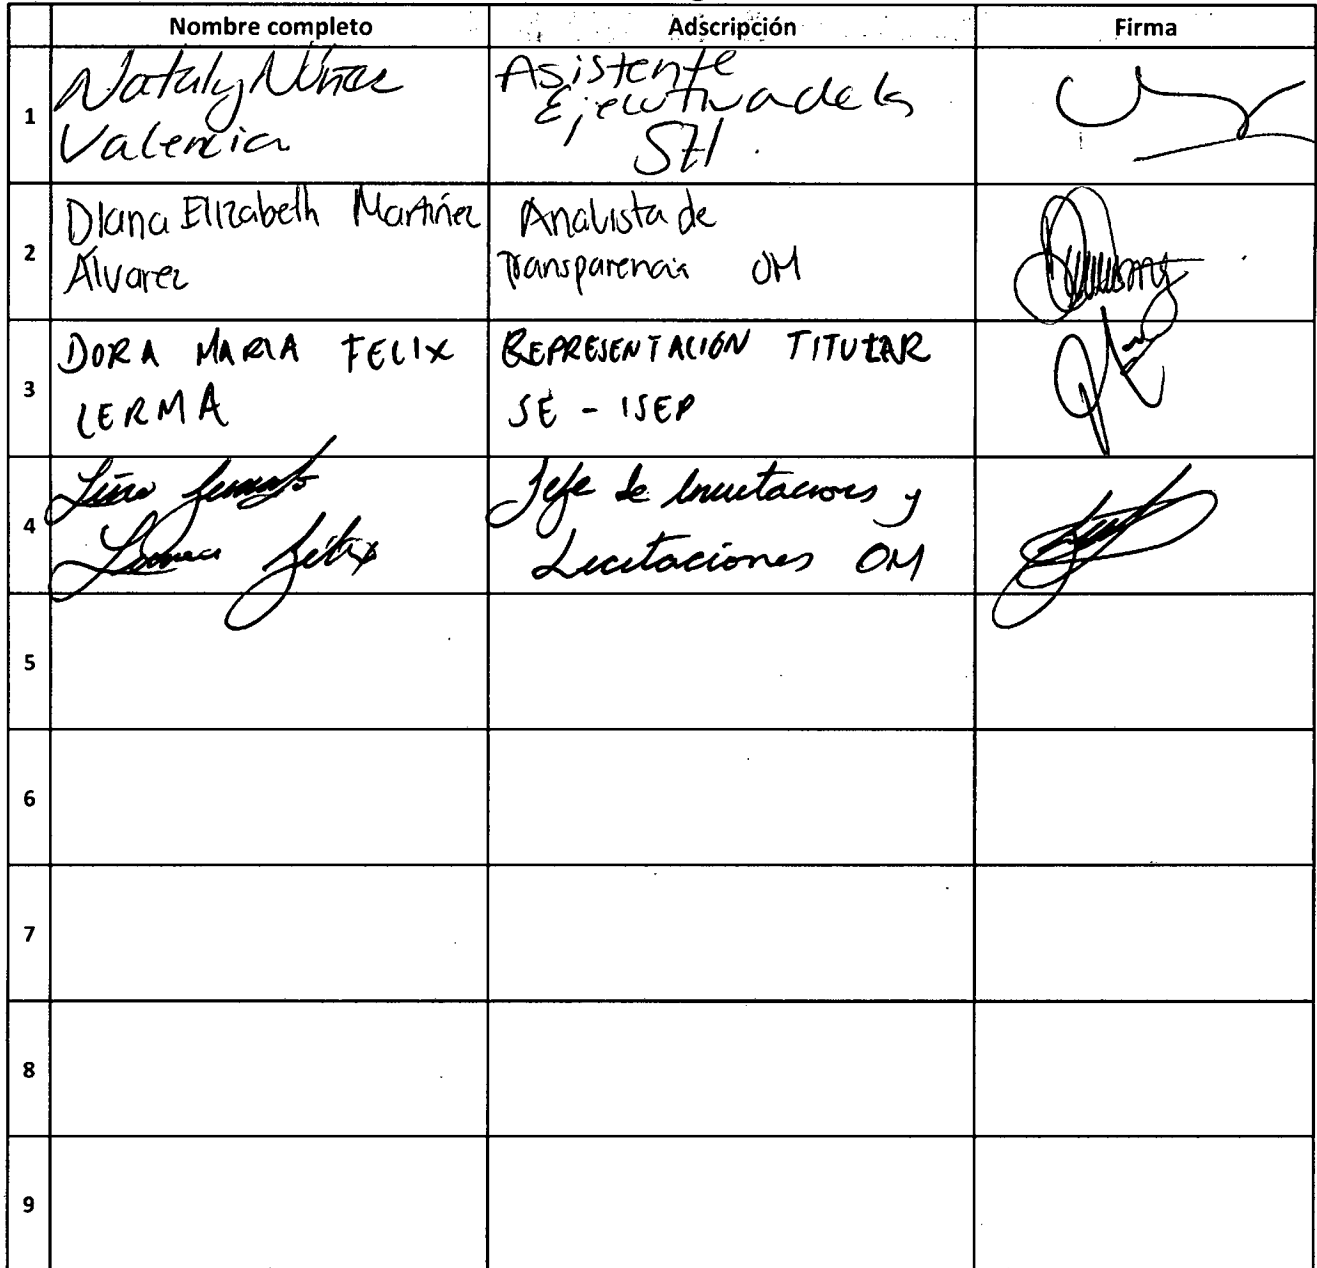 Nombre completo Adscripción Firma
1
Nataly Núñez
Valencia
Asistente
Ejecutiva de la
SH.
2
Diana Elizabeth Martínez
Álvarez
Analista de
Transparencia OM
3
DORA MARIA FELIX
LERMA
REPRESENTACIÓN TITULAR
SE - ISEP
4
Félix
Jefe de Invitaciones y
Licitaciones OM
5
6
7
8
9